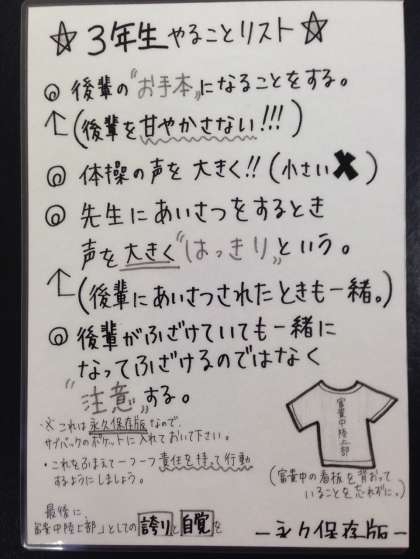 ☆3年生やることリスト☆
◎ 後輩の"お手本"になることをする。
↑(後輩を甘やかさない!!!)
◎ 体操の声を大きく!!(小さい✖)
◎ 先生にあいさつをするとき
声を大きく"はっきり"という。
↑(後輩にあいさつされたときも一緒。)
◎ 後輩がふざけていても一緒に
なってふざけるのではなく
"注意"する。
※これは永久保存版なので、
サイバックのポケットに入れておいて下さい。
・これをふまえて一つ一つ責任を持って行動
するようにしましょう。
富貴中陸上部
(富貴中の看板を背おって
いることを忘れずに。)
最後に、
富貴中陸上部」としての誇りと自覚を
ー永久保存版ー